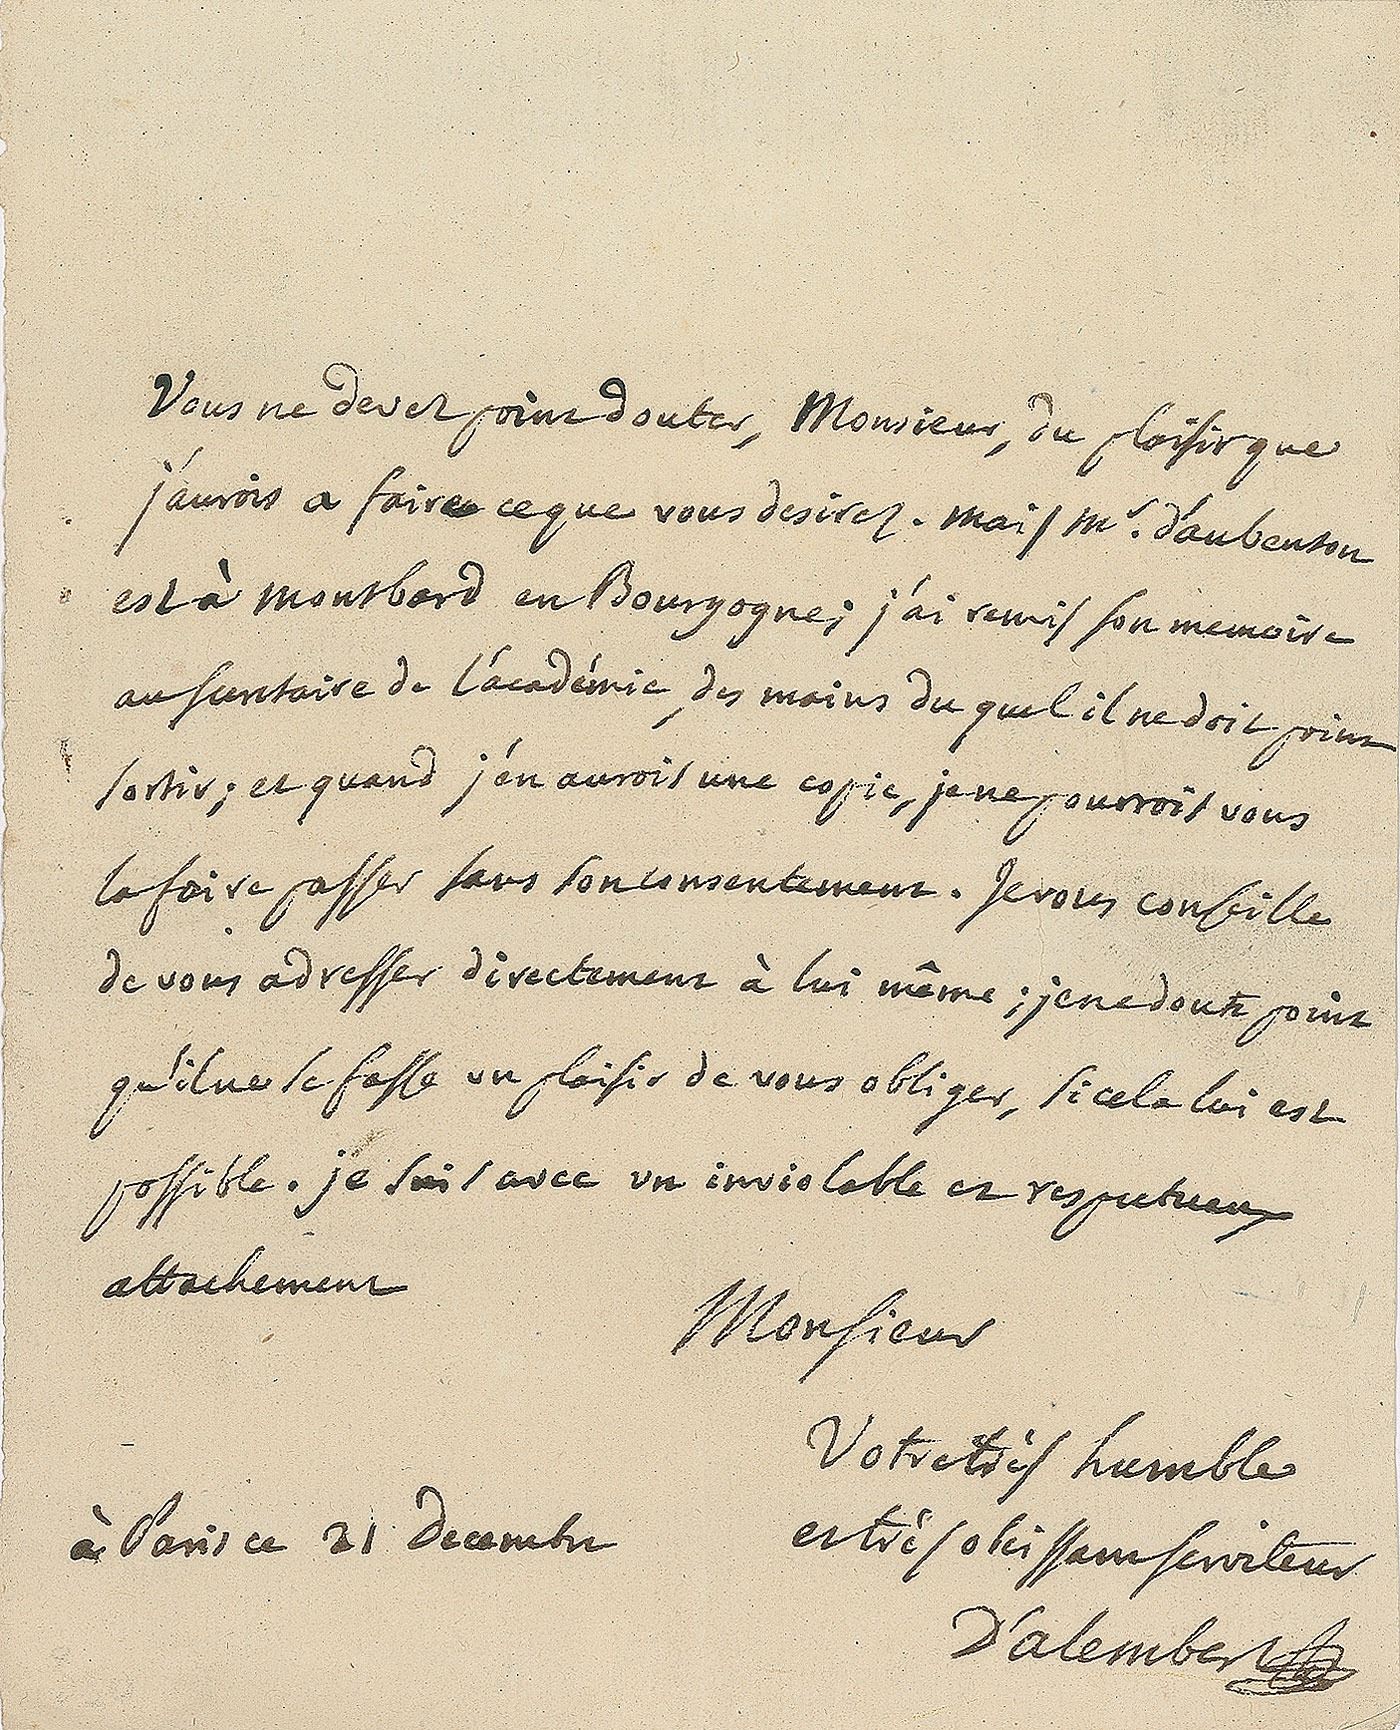 Vous ne devez point douter, Monsieur, du plaisir que
j'aurois a faire ce que vous desirez. mais Mr. d'aubenton
est à Montbard en Bourgogne; j'ai remis son memoire
au secretaire de l'académie, des mains du quel il ne doit point
sortir; et quand j'en aurois une copie, je ne pourrois vous
la faire passer sans son consentement. Je vous conseille
de vous adresser directement à lui même; je ne doute point
qu'il ne se fasse un plaisir de vous obliger, si cela lui est
possible. je suis avec un inviolable et respectueux
attachement
Monsieur
Votre très humble
et très obeissant serviteur
à Paris ce 21 Decembre
D'alembert